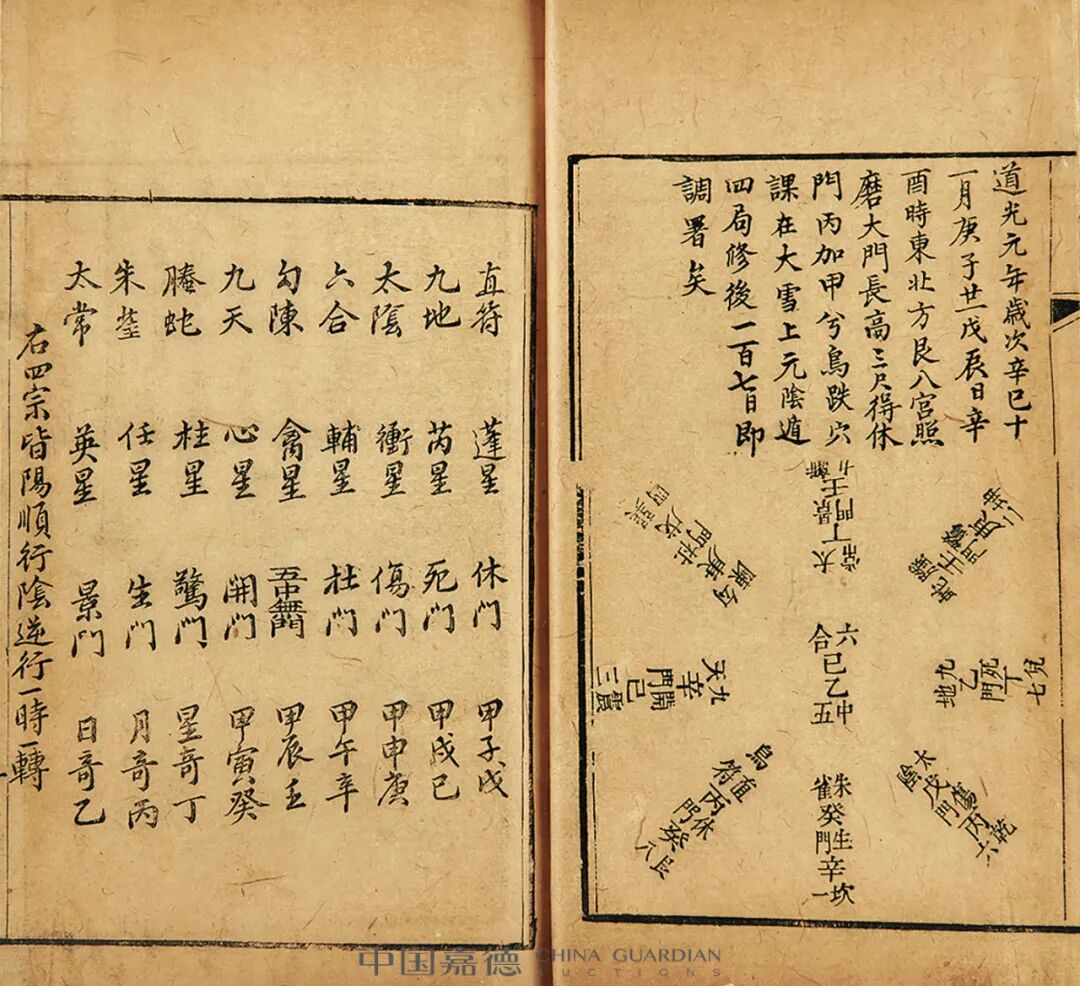 道光元年歲次辛巳十
一月庚子廿戊辰日辛
酉時東北方艮八宮照
磨大門長高三尺得休
門丙加甲兮鳥跌穴
課在大雪上元陰遁
四局修後一百七日即
調署矣
坤二 庚 驚門 壬 螣蛇
九離 壬 景門 丁 太常
戊 杜門 庚 陳
九地 乙 死門 丁 兌七
六合 己 乙 中五
九天 辛 開門 己 震三
太陰 戊 傷門 丙 乾六
朱雀 癸 生門 辛 坎一
鳥 直符 丙 休門 癸 艮八
直符 蓬星 休門 甲子戊
九地 芮星 死門 甲戌己
太陰 衝星 傷門 甲申庚
六合 輔星 杜門 甲午辛
勾陳 禽星 五中無門 甲辰壬
九天 心星 開門 甲寅癸
螣蛇 柱星 驚門 星奇丁
朱雀 任星 生門 月奇丙
太常 英星 景門 日奇乙
右四宗皆陽順行陰逆行一時一轉
中国嘉德 CHINA GUARDIAN
AUCTIONS